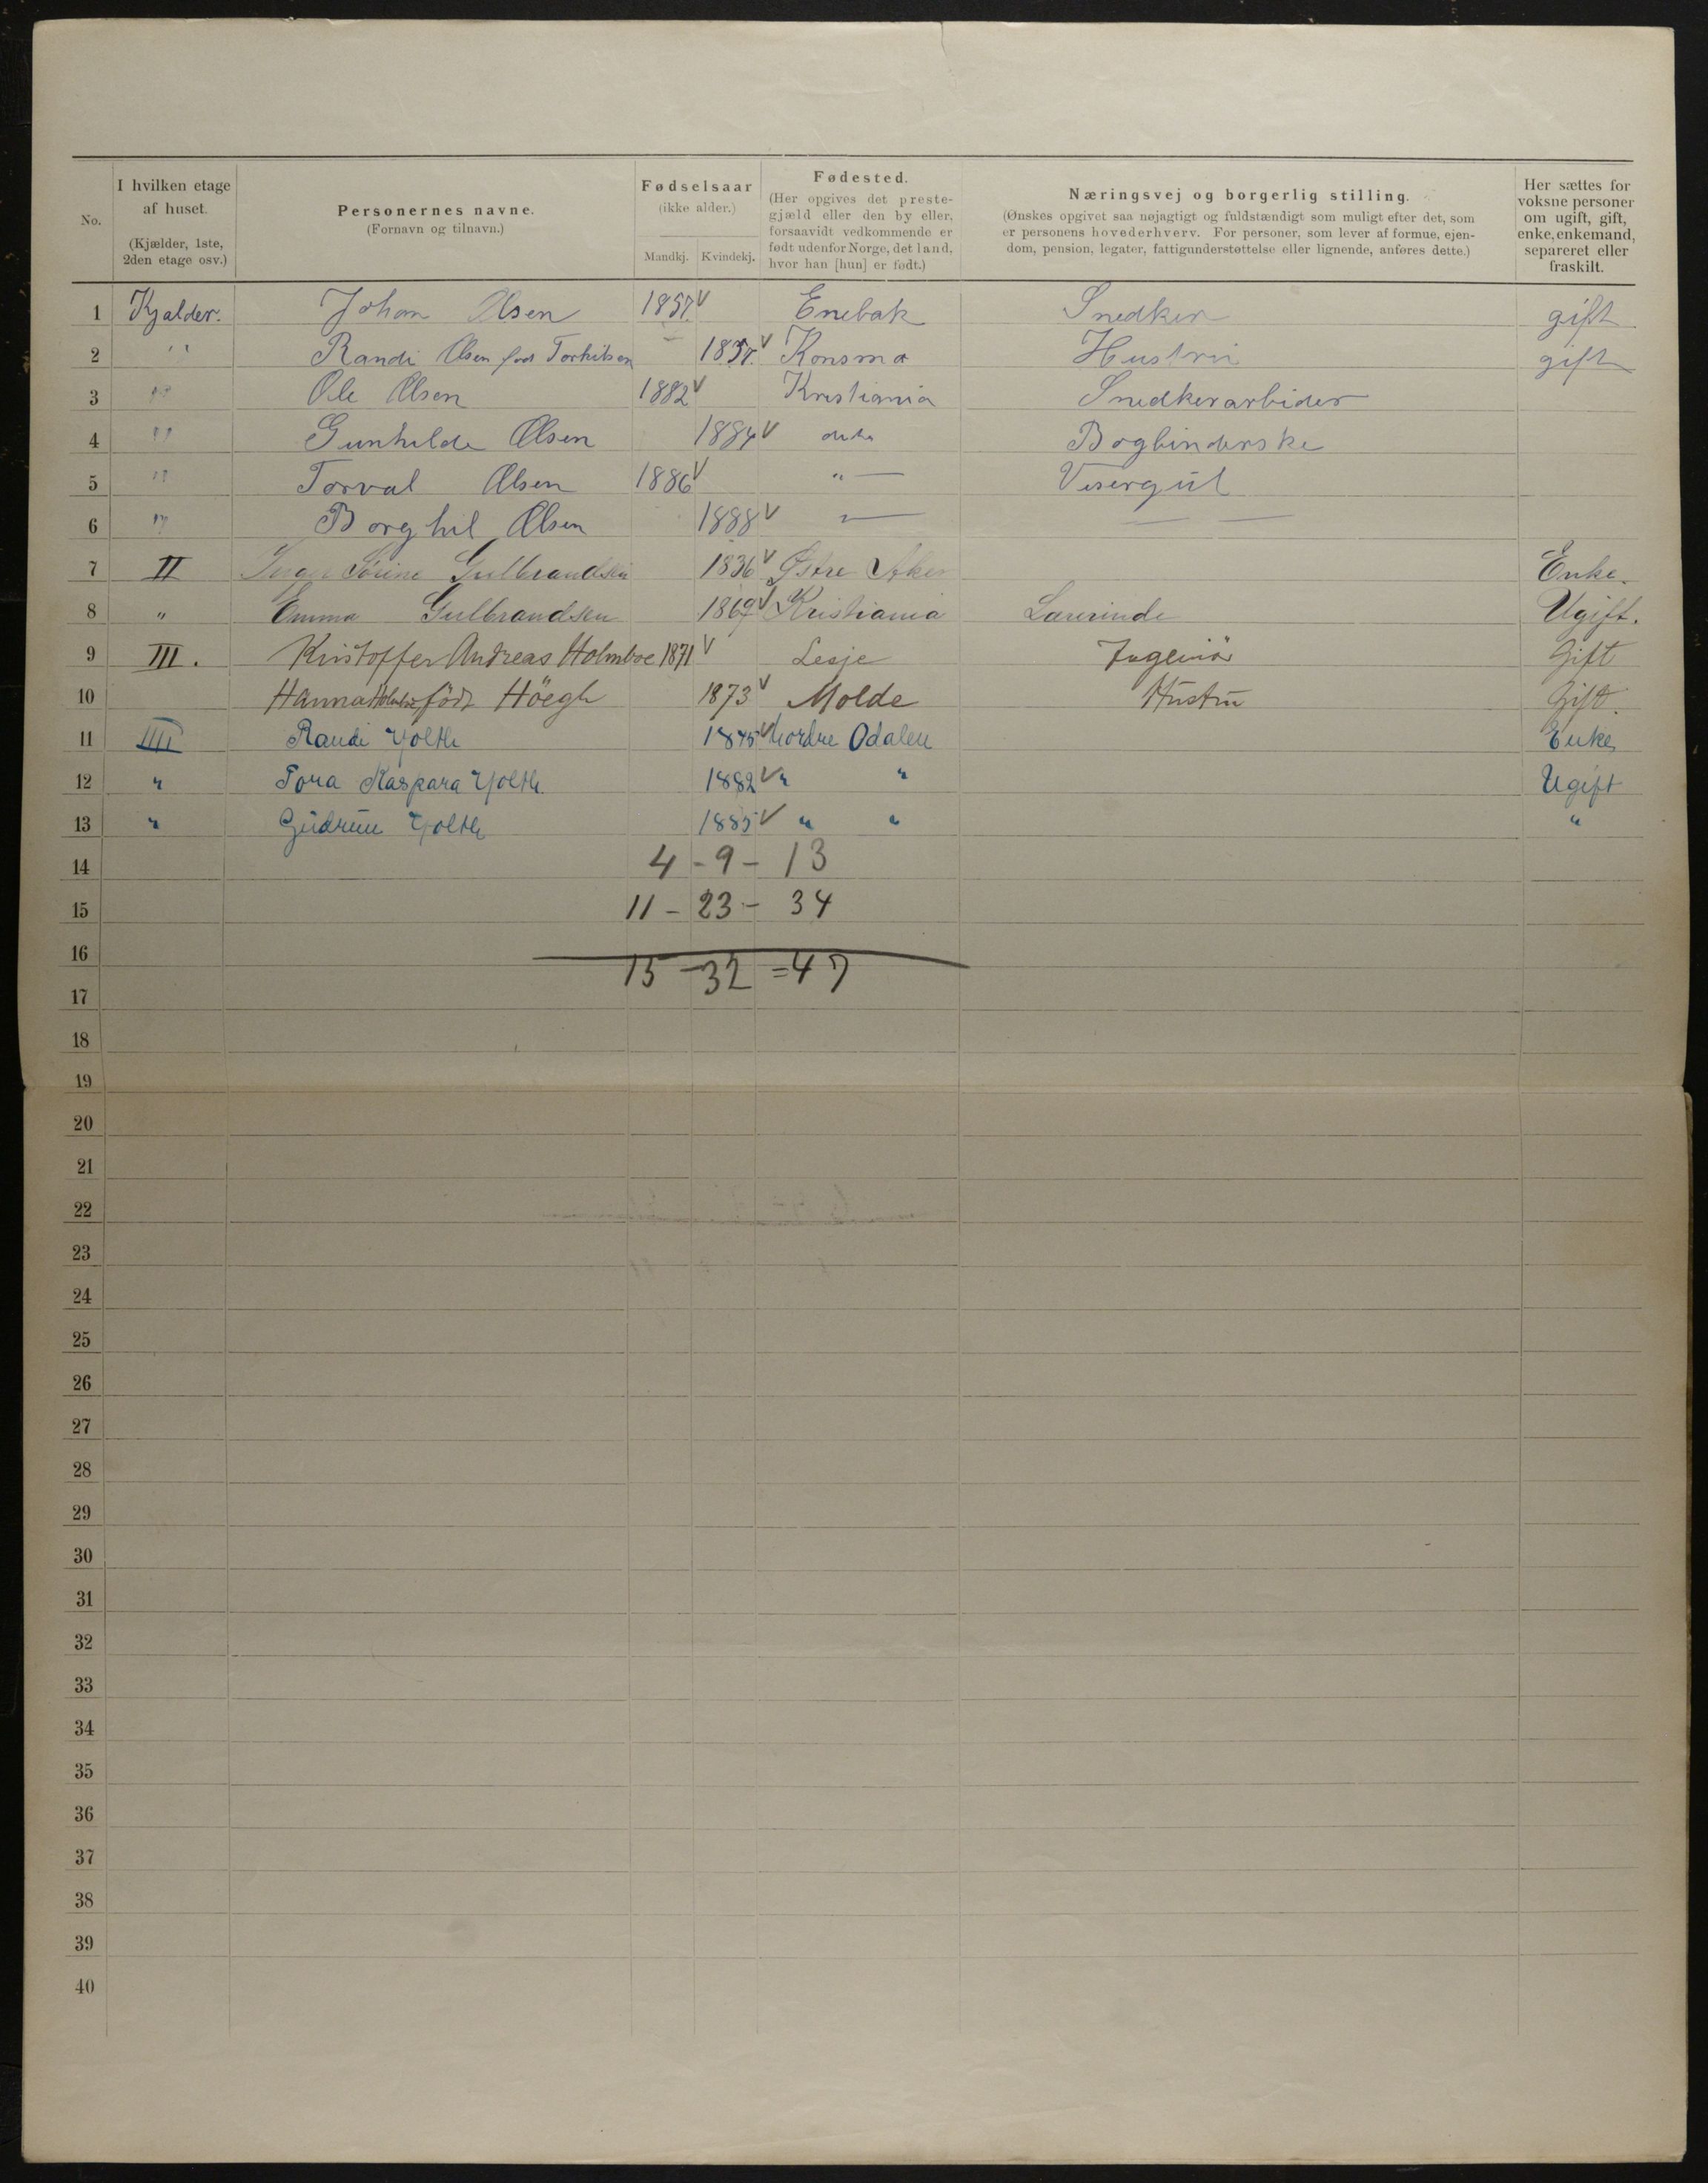 No.
I hvilken etage af huset. (Kjælder, 1ste, 2den etage osv.)
Personernes navne. (Fornavn og tilnavn.)
Fødselsaar (ikke alder.) Mandkj. Kvindekj.
Fødested. (Her opgives det prestegjæld eller den by eller, forsaavidt vedkommende er født udenfor Norge, det land, hvor han [hun] er født.)
Næringsvej og borgerlig stilling. (Ønskes opgivet saa nøjagtigt og fuldstændigt som muligt efter det, som er personens hovederhverv. For personer, som lever af formue, ejendom, pension, legater, fattigunderstøttelse eller lignende, anføres dette.)
Her sættes for voksne personer om ugift, gift, enke, enkemand, separeret eller fraskilt.
1 Kjalder. Johan Olsen 1857 v Enebak Snedker gift
2 " Randi Olsen fød Torkilsen v Konsmo Hustru gift
3 " Ole Olsen 1882 v Kristiania Snedkerarbider
4 " Gunhilde Olsen 1884 v Bogbinderske
5 " Torval Olsen 1886 v " — Visergut
6 " Borghil Olsen 1888 v — — —
7 II Sørine Gulbrandsen 1836 v Østre Aker Enke.
8 " Emma Gulbrandsen 1869 v Kristiania Lærerinde Ugift.
9 III. Kristoffer Andreas Holmboe 1871 v Lesje Ingeniør Gift
10 Hanna Holmboe født Höegh 1873 v Molde Hustru Gift.
11 IIII Randi 1845 v Nordre Odalen Enke
12 " Tora Kaspara 1882 v " " Ugift
13 " Gudrun 1885 v " " "
14 4 - 9 - 13
15 11 - 23 - 34
16
15 - 32 = 47
17
18
19
20
21
22
23
24
25
26
27
28
29
30
31
32
33
34
35
36
37
38
39
40